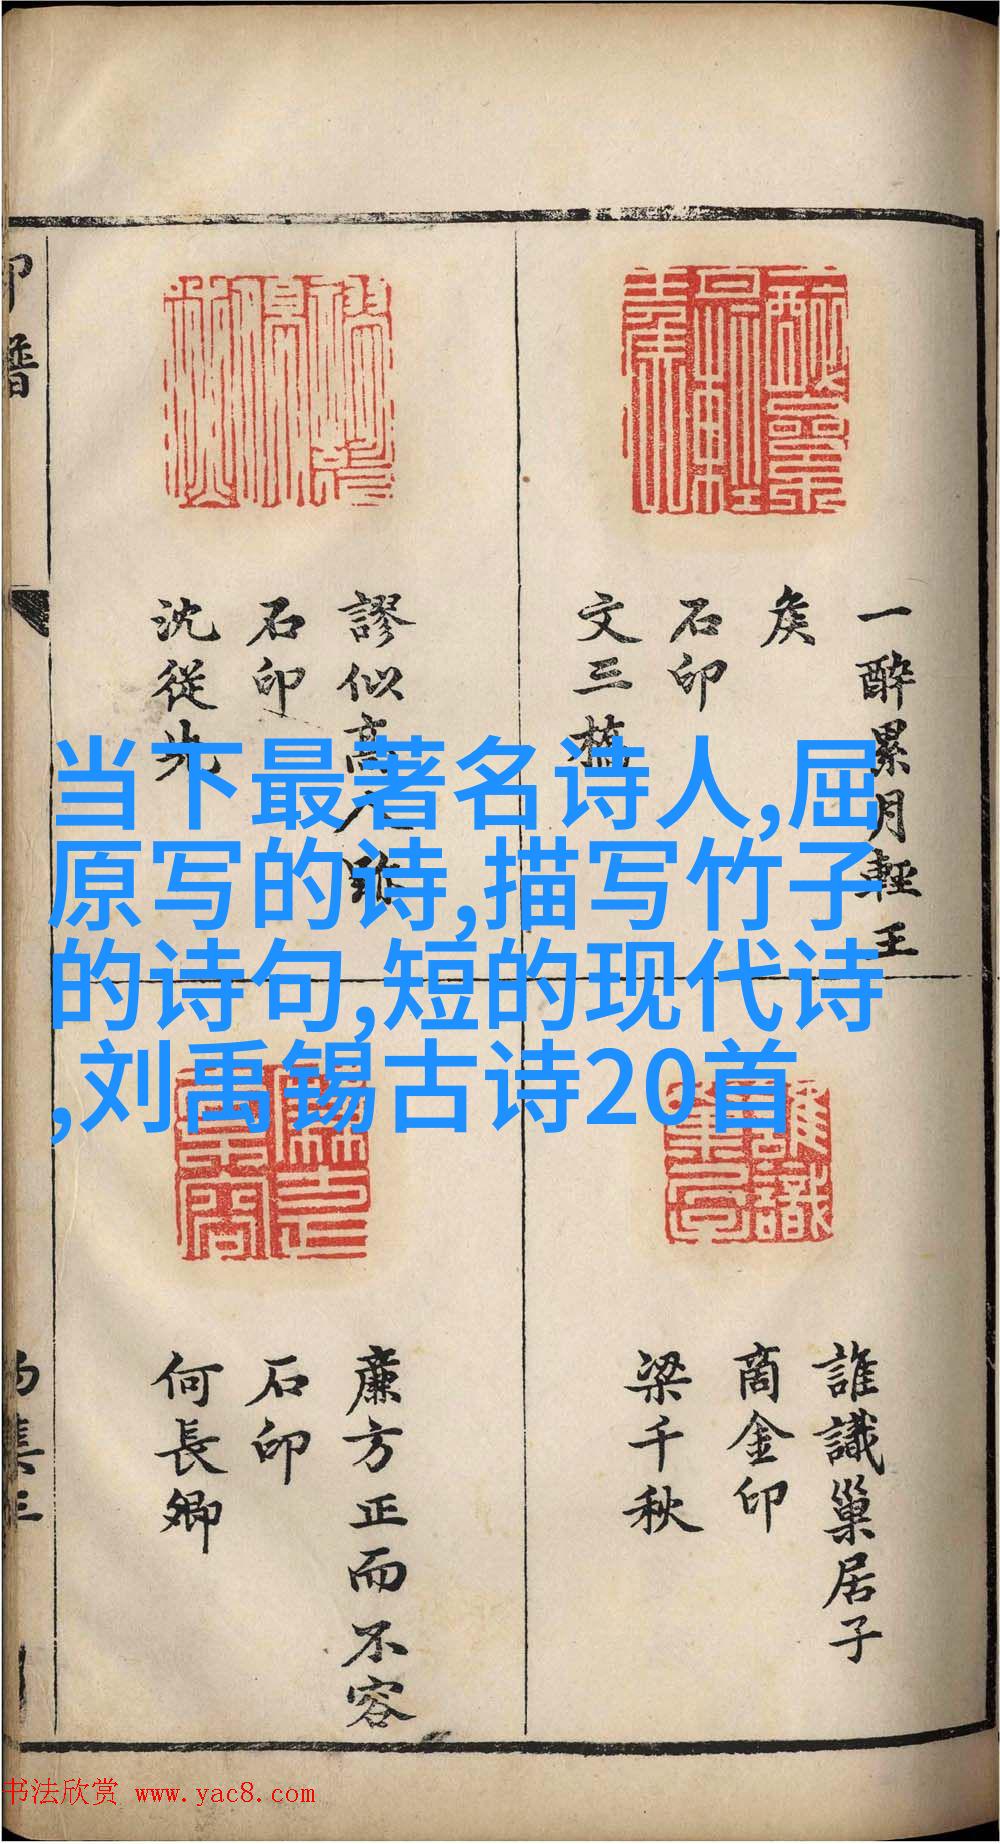 当下最著名诗人,屈
原写的诗,描写竹子
的诗句,短的现代诗
,刘禹锡古诗20首
一醉累月輕王
矦
石印
文三橋
謬似高人
石印
沈從先
誰識巢居子
商金印
梁千秋
廉方正而不容
石印
何長卿
印譜
书法欣赏 www.yac8.com